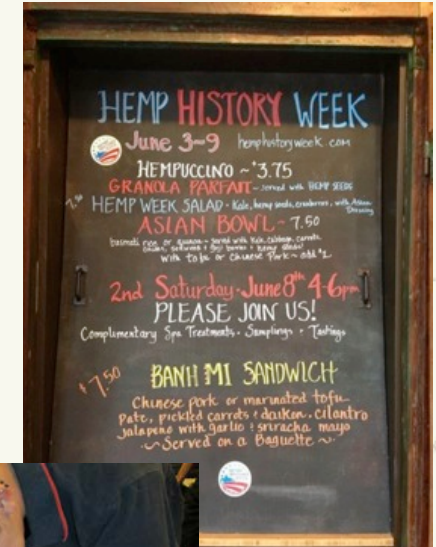 HEMP HISTORY WEEK
June 3-9 hemphistoryweek.com
HEMPUCCINO ~ $3.75
GRANOLA PARFAIT - served with HEMP SEEDS
HEMP WEEK SALAD - Kale, hemp seeds, cranberries, with Asian Dressing
ASIAN BOWL - 7.50
basmati rice or quinoa - served with Kale, Cabbage, carrots
seaweed & goji berries & hemp seeds!
With tofu or Chinese Pork - add $1
2nd Saturday - June 8th 4-6pm
PLEASE JOIN US!
Complimentary Spa Treatments - Samplings + Tastings
$7.50
BANH MI SANDWICH
Chinese pork or marinated tofu
Pate, pickled carrots & daikon, cilantro
jalapeno with garlic & sriracha mayo
~ Served on a Baguette ~